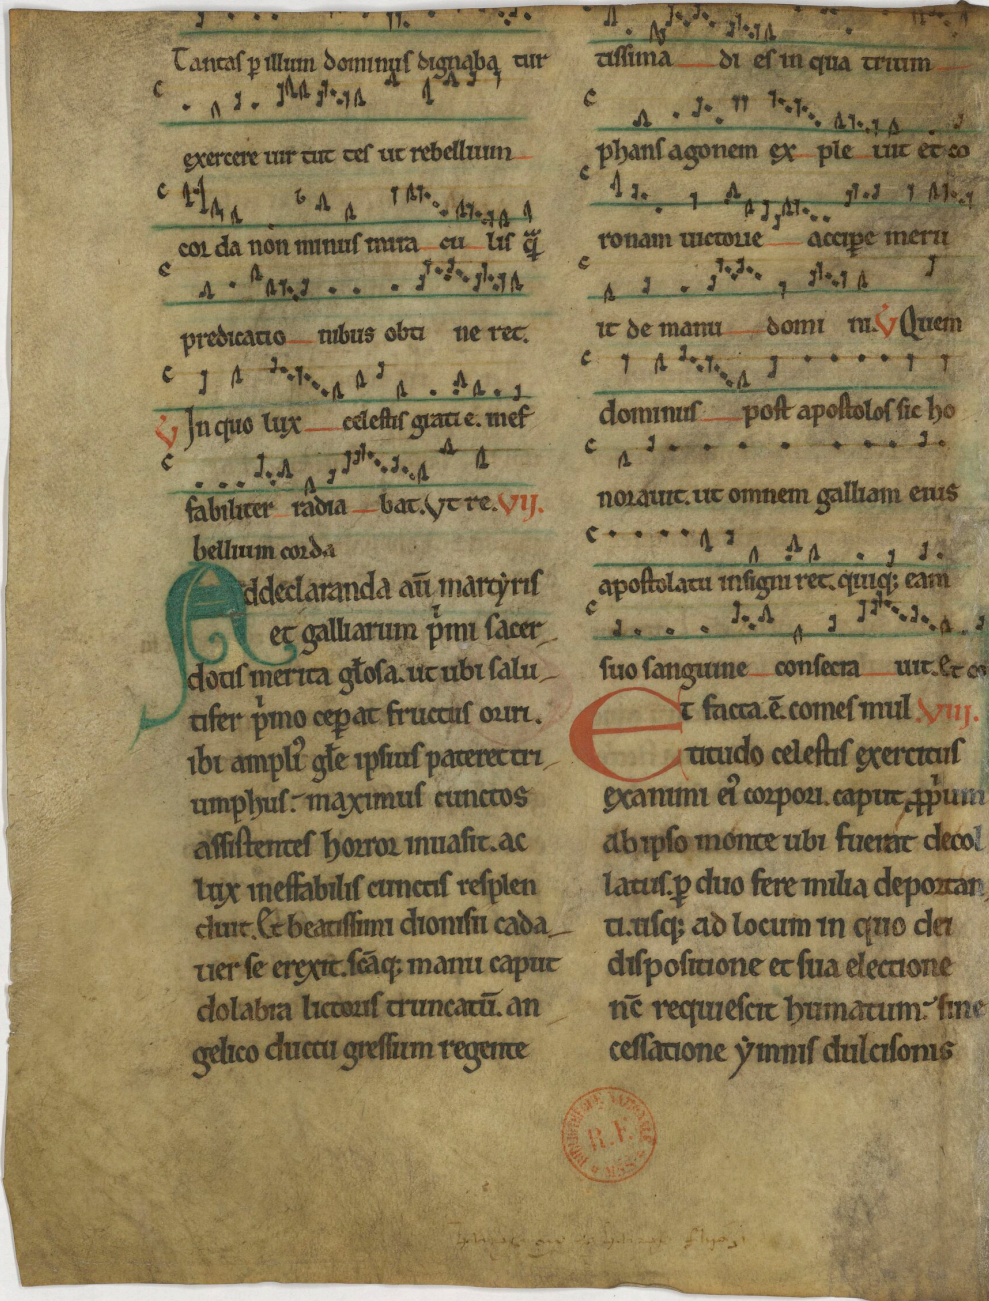 Tantas ꝑ illum dominus dignaba tur
exercere uir tut tes ut rebellium
cor da non minus mira cu lis
predicatio nibus obti ne ret.
℣ In quo lux celestis gratie. inef
fabiliter radia bat. Vt re. VII.
bellium corda
Ad declaranda aū martyris
et galliarum pͥmi sacer
dotis merita gl̄osa. ut ubi salu
tifer pͥmo ceꝑat fructus oriri.
ibi ampliꝰ gl̄e ipsius pateret tri
umphus: maximus cunctos
assistentes horror inuasit. ac
lux ineffabilis cunctis resplen
duit. Et beatissimi dionisii cada
uer se erexit. scāqꝫ manu caput
dolabra lictoris truncatū. an
gelico ductu gressum regente
tissima di es in qua trium
phans agonem ex ple uit et co
ronam uictorie acciꝑe meru
it de manu domi ni. ℣ Quem
dominus post apostolos sic ho
norauit. ut omnem galliam eius
apostolatu insigniret. quiqꝫ eam
suo sanguine consecra uit. Et co
Et facta. ē. comes mul VIII.
titudo celestis exercitus
exanimi eiꝰ corpori. caput ꝓpͥum
ab ipso monte ubi fuerat decol
latus. ꝑ duo fere milia deportan
ti. usqꝫ ad locum in quo dei
dispositione et sua electione
nc̄ requiescit humatum: sine
cessatione ẏmnis dulcisonis
R.F.